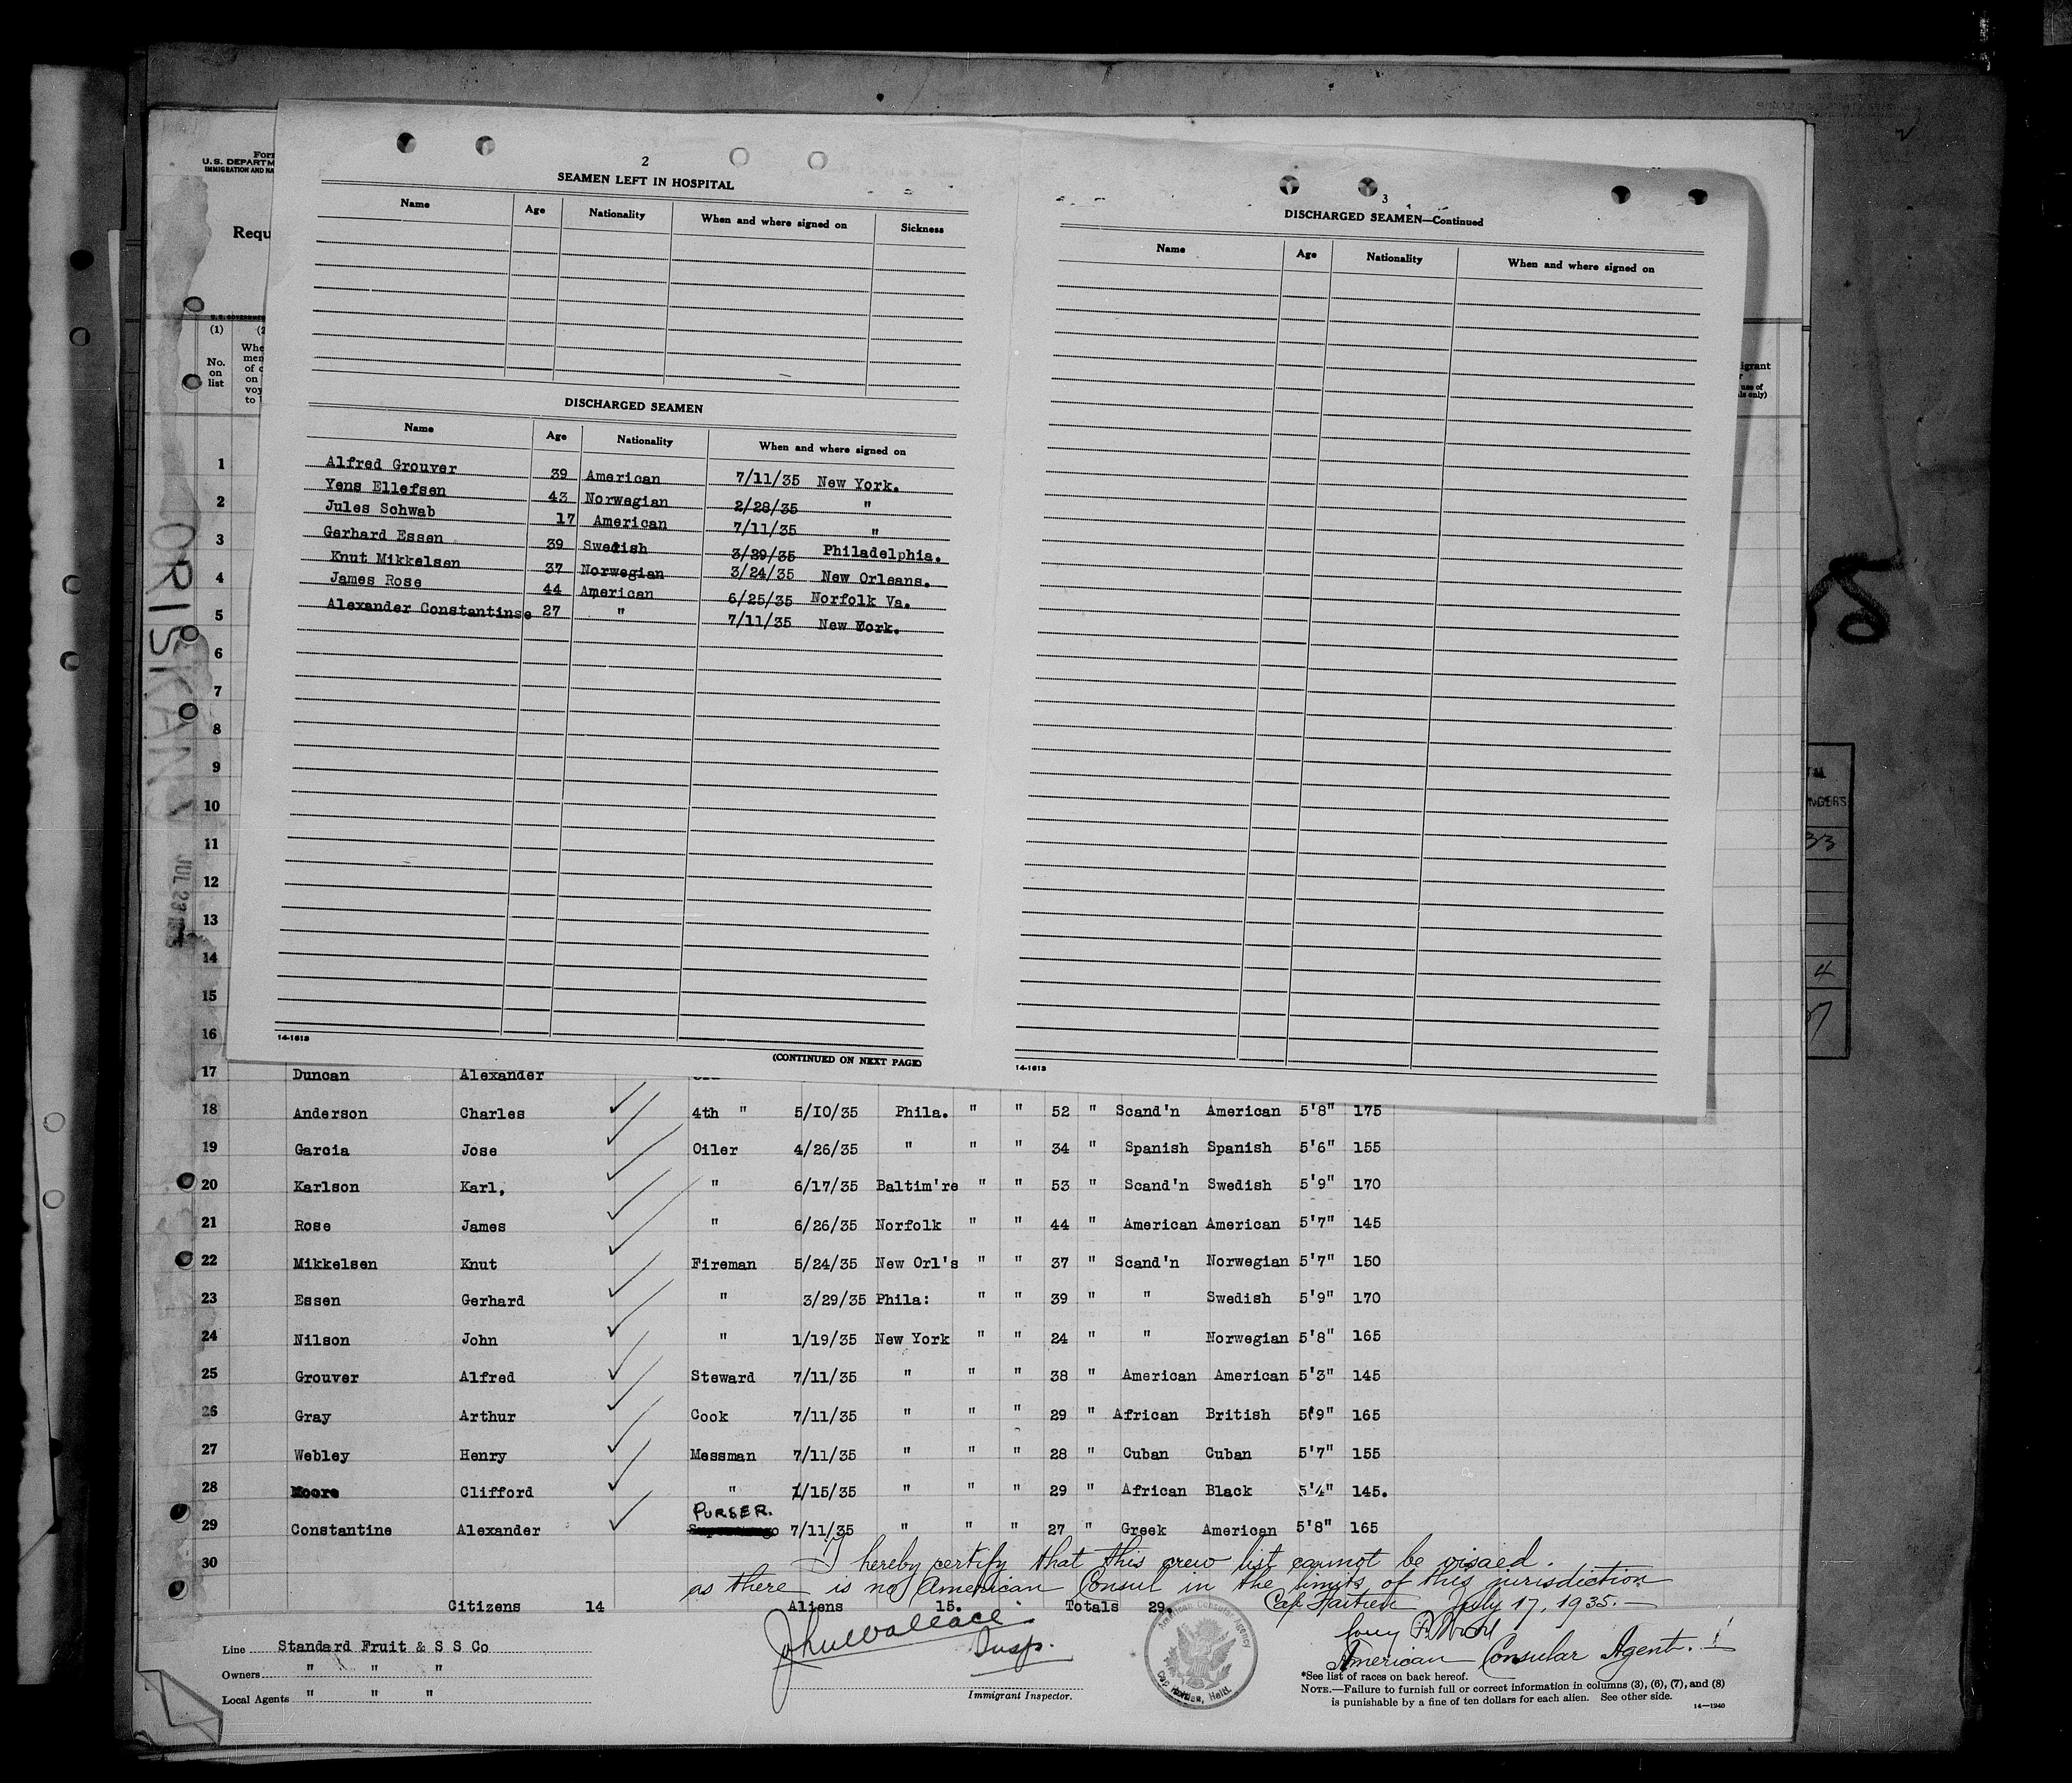 Form
U.S. DEPARTM
IMMIGRATION AND NA
Requ
(1)
No.
on
list
Whe
men
of c
on
voy
to
2
SEAMEN LEFT IN HOSPITAL
Name Age Nationality When and where signed on Sickness
DISCHARGED SEAMEN
Name Age Nationality When and where signed on
Alfred Grouver 39 American 7/11/35 New York.
Yens Ellefsen 43 Norwegian 2/28/35 "
Jules Schwab 17 American 7/11/35 "
Gerhard Essen 39 Swedish 3/29/35 Philadelphia.
Knut Mikkelsen 37 Norwegian 3/24/35 New Orleans.
James Rose 44 American 6/25/35 Norfolk Va.
Alexander Constantinse 27 " 7/11/35 New York.
14-1613
(CONTINUED ON NEXT PAGE)
3
DISCHARGED SEAMEN—Continued
Name Age Nationality When and where signed on
14-1613
igrant
r
use of
ls only)
ORISKANY
JUL 23
TAL
NGERS
33
4
1
2
3
4
5
6
7
8
9
10
11
12
13
14
15
16
17 Duncan Alexander
18 Anderson Charles 4th " 5/10/35 Phila. " " 52 " Scand'n American 5'8" 175
19 Garcia Jose Oiler 4/26/35 " " " 34 " Spanish Spanish 5'6" 155
20 Karlson Karl, " 6/17/35 Baltim're " " 53 " Scand'n Swedish 5'9" 170
21 Rose James " 6/26/35 Norfolk " " 44 " American American 5'7" 145
22 Mikkelsen Knut Fireman 5/24/35 New Orl's " " 37 " Scand'n Norwegian 5'7" 150
23 Essen Gerhard " 3/29/35 Phila: " " 39 " " Swedish 5'9" 170
24 Nilson John " 1/19/35 New York " " 24 " " Norwegian 5'8" 165
25 Grouver Alfred Steward 7/11/35 " " " 38 " American American 5'3" 145
26 Gray Arthur Cook 7/11/35 " " " 29 " African British 5'9" 165
27 Webley Henry Messman 7/11/35 " " " 28 " Cuban Cuban 5'7" 155
28 Moore Clifford " 1/15/35 " " " 29 " African Black 5'4" 145.
PURSER.
29 Constantine Alexander 7/11/35 " " " 27 " Greek American 5'8" 165
30 I hereby certify that this crew list cannot be visaed.
as there is no American Consul in the limits of this jurisdiction
Citizens 14 Aliens 15. Totals 29. Cap Haitien July 17, 1935.
John Wallace
Insp.
Immigrant Inspector.
American Consular Agency
Cap Haitien, Haiti.
American Consular Agent.
Line Standard Fruit & S S Co
Owners " " "
Local Agents " " "
*See list of races on back hereof.
NOTE.—Failure to furnish full or correct information in columns (3), (6), (7), and (8)
is punishable by a fine of ten dollars for each alien. See other side.
14—1240